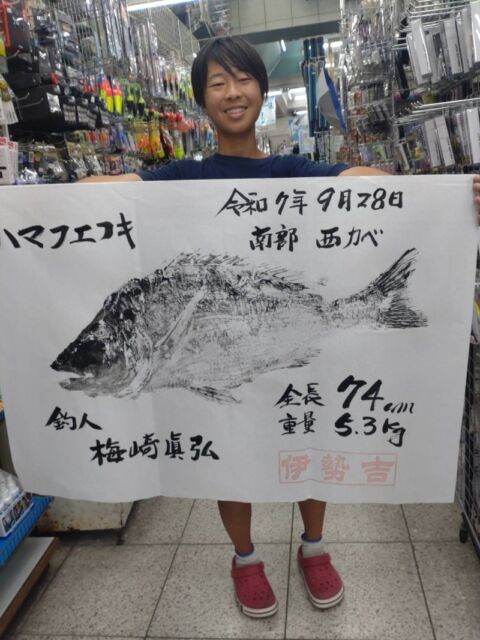 令和7年9月28日
ハマフエフキ
南部 西カベ
全長 74cm
重量 5.3kg
釣人
梅崎眞弘
伊勢吉